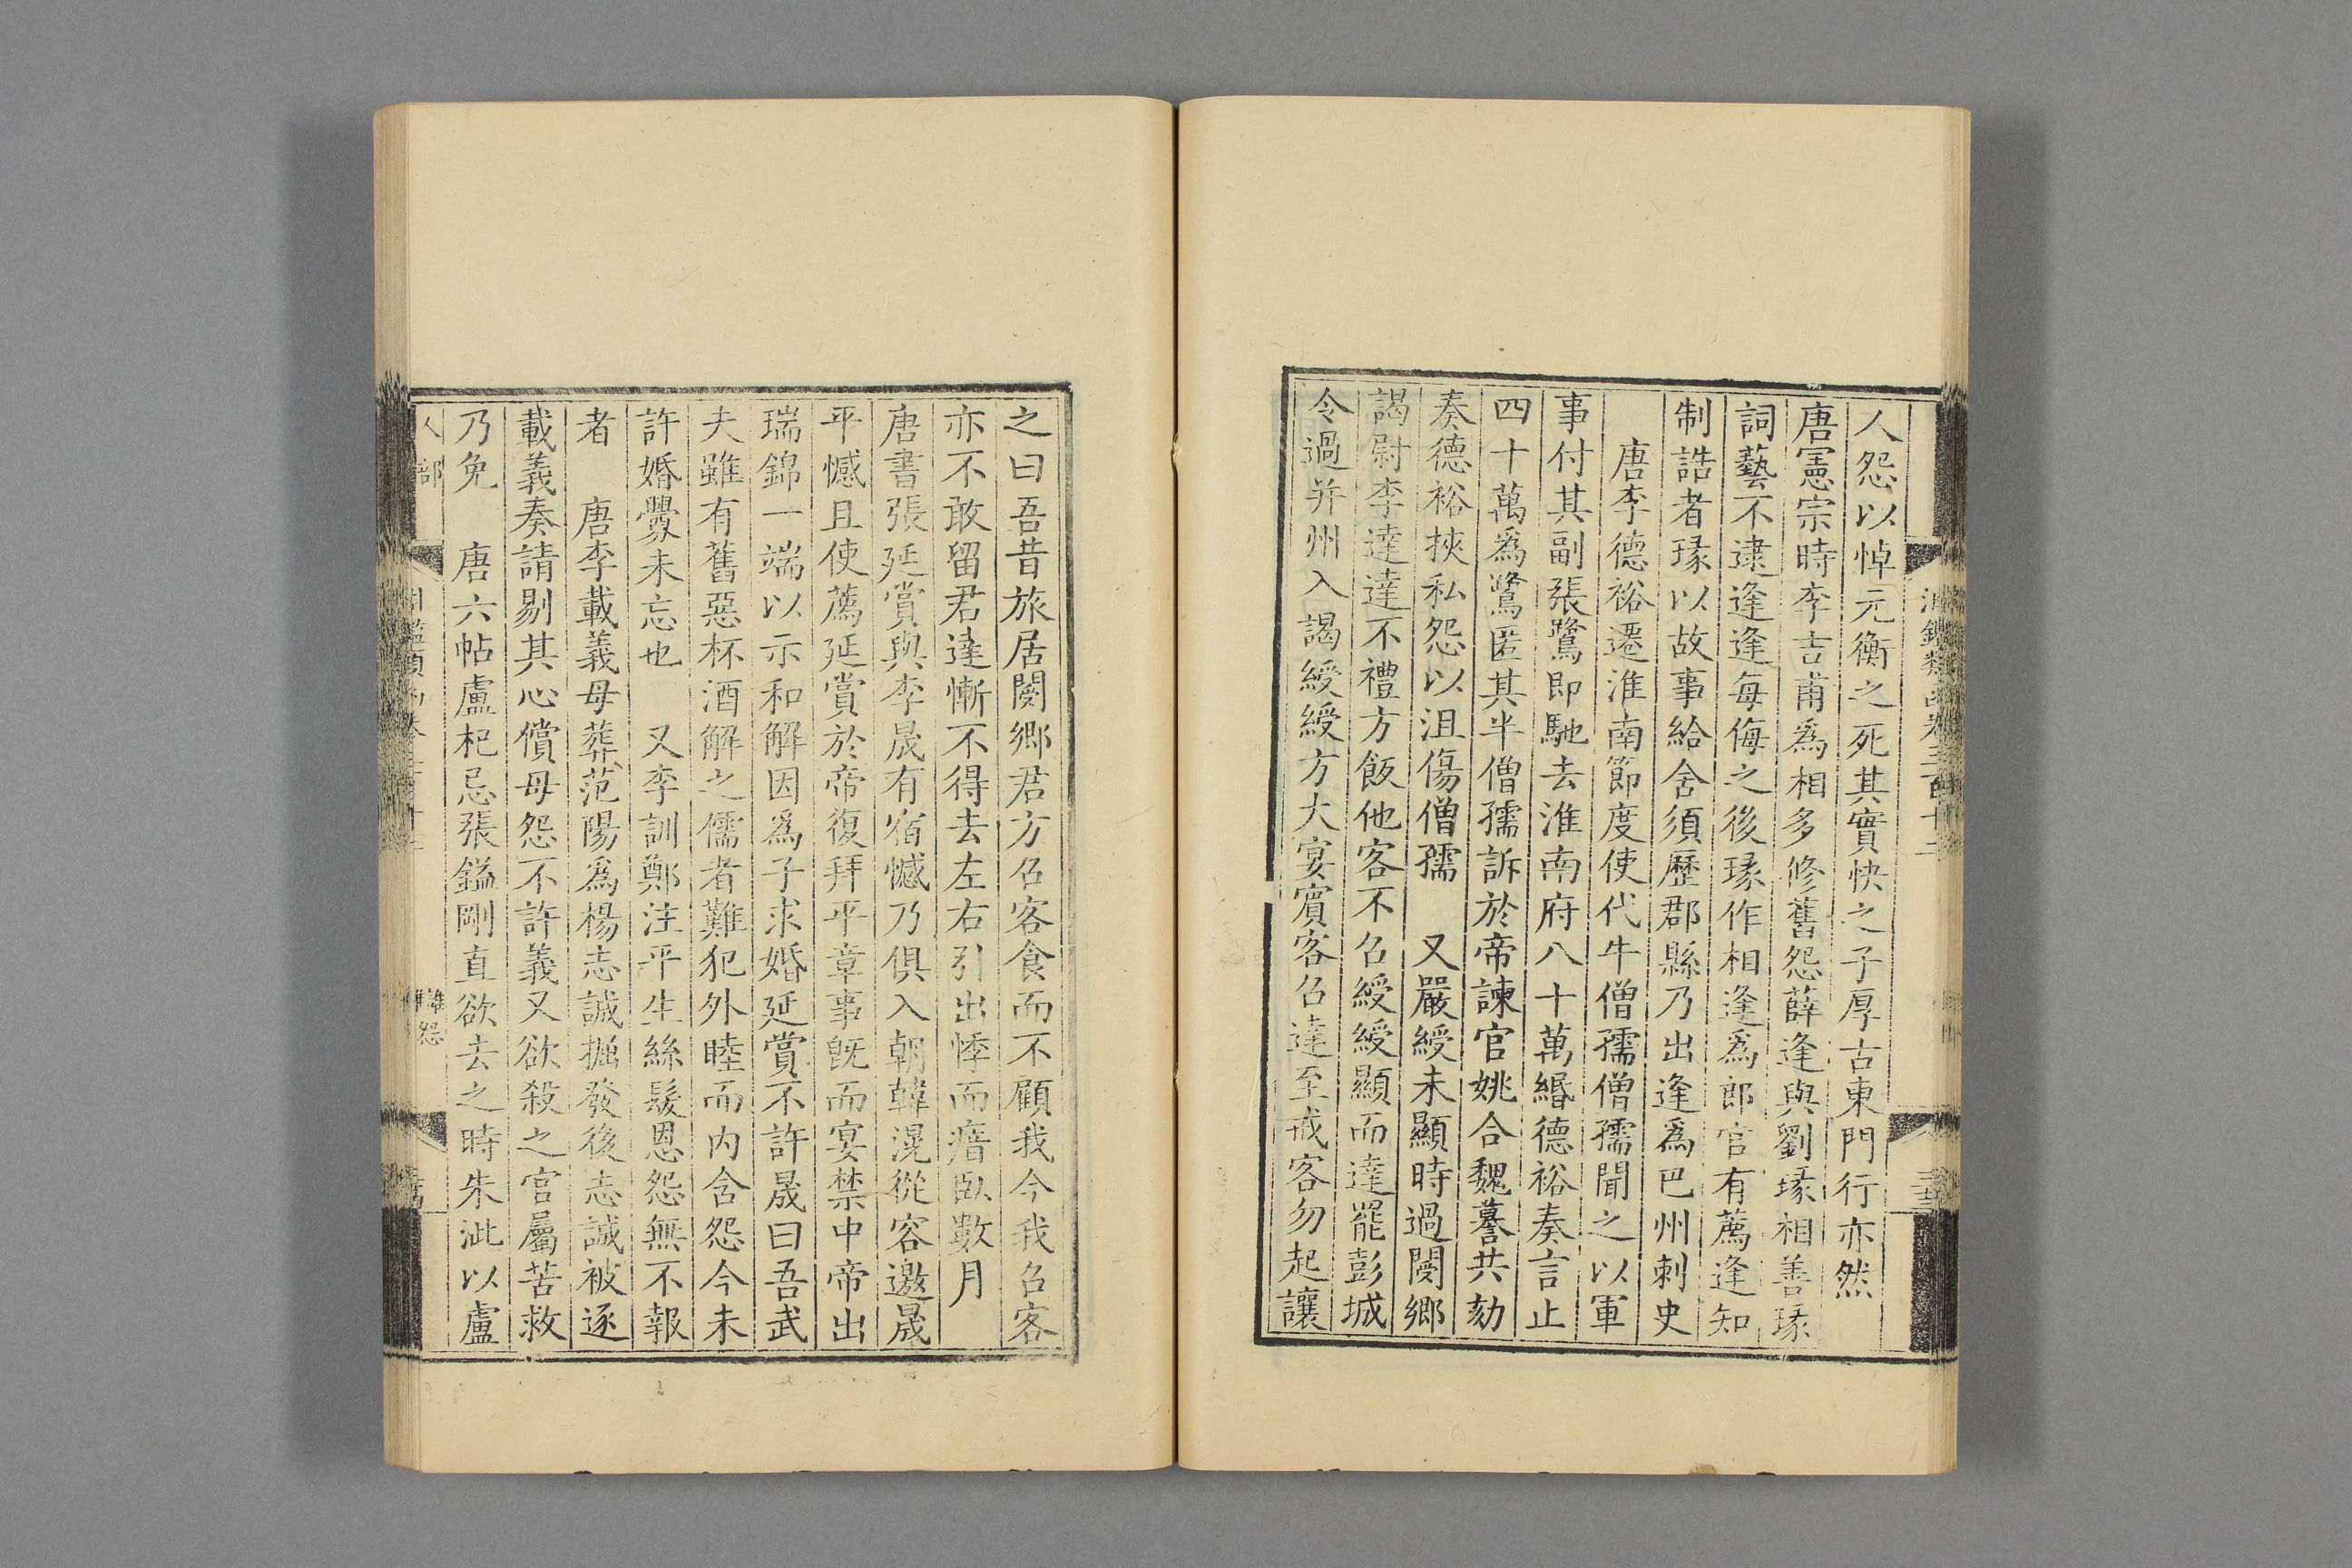 人怨以悼元衡之死其實快之子厚古東門行亦然
唐憲宗時李吉甫爲相多修舊怨薛逢與劉瑑相善瑑
詞藝不逮逢逢每侮之後瑑作相逢爲郎官有薦逢知
制誥者瑑以故事給舍須歷郡縣乃出逢爲巴州刺史
唐李德裕遷淮南節度使代牛僧孺僧孺聞之以軍
事付其副張鷺即馳去淮南府八十萬緡德裕奏言止
四十萬爲鷺匿其半僧孺訴於帝諫官姚合魏謩共劾
奏德裕挾私怨以沮傷僧孺　又嚴綬未顯時過閿鄉
謁尉李達達不禮方飯他客不召綬綬顯而達罷彭城
令過并州入謁綬綬方大宴賓客召達至戒客勿起讓
之曰吾昔旅居閿鄉君方召客食而不顧我今我召客
亦不敢留君達慚不得去左右引出悸而瘖臥數月
唐書張延賞與李晟有宿憾乃俱入朝韓滉從容邀晟
平憾且使薦延賞於帝復拜平章事旣而宴禁中帝出
瑞錦一端以示和解因爲子求婚延賞不許晟曰吾武
夫雖有舊惡杯酒解之儒者難犯外睦而内含怨今未
許婚釁未忘也　又李訓鄭注平生絲髮恩怨無不報
者　唐李載義母葬范陽爲楊志誠掘發後志誠被逐
載義奏請剔其心償母怨不許義又欲殺之官屬苦救
乃免　唐六帖盧杞忌張鎰剛直欲去之時朱泚以盧
人部
讎怨